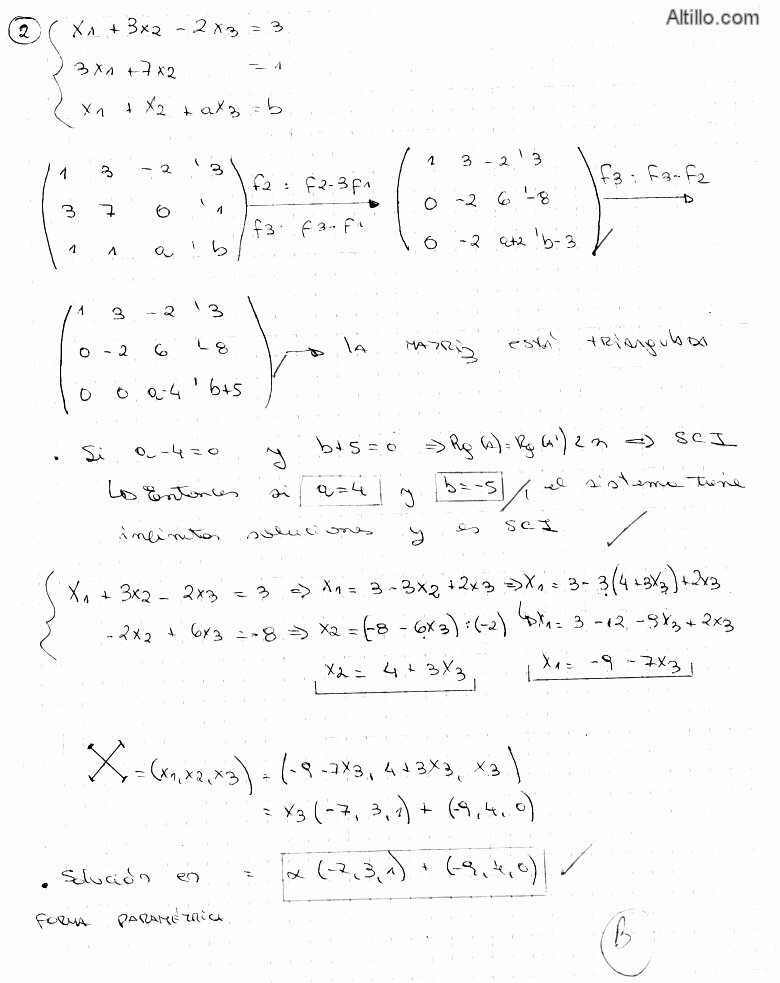 Altillo.com
2
x1 + 3x2 - 2x3 = 3
3x1 + 7x2 = 1
x1 + x2 + ax3 = b
1 3 -2 ¦ 3 f2: f2-3f1 1 3 -2 ¦ 3 f3: f3-f2
3 7 0 ¦ 1 f3: f3-f1 0 -2 6 ¦ -8
1 1 a ¦ b 0 -2 a+2 ¦ b-3
1 3 -2 ¦ 3
0 -2 6 ¦ -8 → la matriz está triangulada
0 0 a-4 ¦ b+5
. Si a-4=0 y b+5=0 ⇒ Rg(A)=Rg(A')<n ⇒ SCI
↳ Entonces si a=4 y b=-5, el sistema tiene
infinitas soluciones y es SCI
x1 + 3x2 - 2x3 = 3 ⇒ x1 = 3-3x2+2x3 ⇒ x1 = 3-3(4+3x3)+2x3
-2x2 + 6x3 = -8 ⇒ x2 = (-8 - 6x3) : (-2) ↳ x1 = 3 -12 -9x3 + 2x3
x2 = 4 + 3x3 x1 = -9 - 7x3
X = (x1, x2, x3) = (-9-7x3, 4+3x3, x3)
= x3(-7, 3, 1) + (-9, 4, 0)
. Solución en = α (-7, 3, 1) + (-9, 4, 0)
forma paramétrica
B